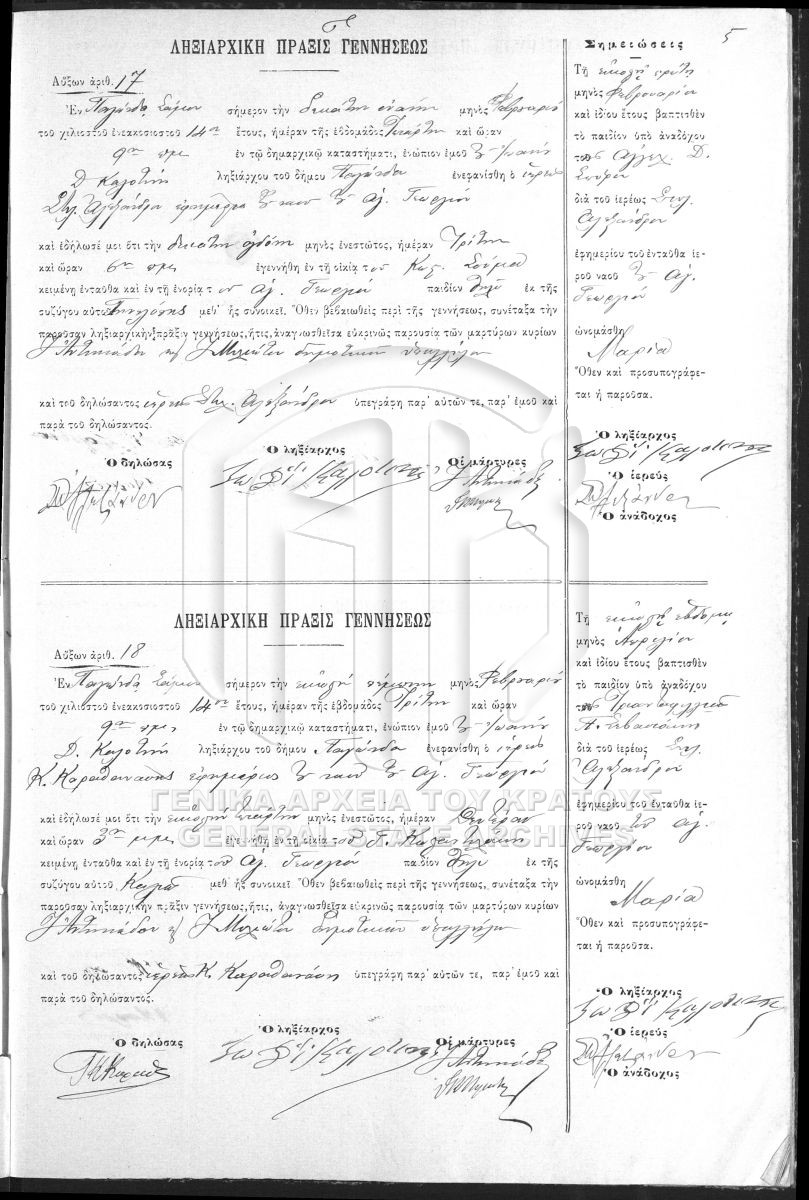 5
ΛΗΞΙΑΡΧΙΚΗ ΠΡΑΞΙΣ ΓΕΝΝΗΣΕΩΣ
Αὔξων ἀριθ. 17
Ἐν Παγώνδᾳ Σάμου σήμερον τὴν δεκάτην ἐνάτην μηνὸς Φεβρουαρίου
τοῦ χιλιοστοῦ ἐνεακοσιοστοῦ 14ου ἔτους, ἡμέραν τῆς ἑβδομάδος Τετάρτην καὶ ὥραν
9ην πμ ἐν τῷ δημαρχικῷ καταστήματι, ἐνώπιον ἐμοῦ Ἰωάννου
Δ. Καλοτίνη ληξιάρχου τοῦ δήμου Παγώνδα ἐνεφανίσθη ὁ ἱερεὺς
Στυλ. Ἀλεξάνδρου ἐφημέριος ναοῦ Ἁγ. Γεωργίου
καὶ ἐδήλωσέ μοι ὅτι τὴν δεκάτην ὀγδόην μηνὸς ἐνεστῶτος, ἡμέραν Τρίτην
καὶ ὥραν 6ην πμ ἐγεννήθη ἐν τῇ οἰκίᾳ του Κωσ. Σούμα
κειμένῃ ἐνταῦθα καὶ ἐν τῇ ἐνορίᾳ του Ἁγ. Γεωργίου παιδίον θῆλυ ἐκ τῆς
συζύγου αὐτοῦ μεθ' ἧς συνοικεῖ. Ὅθεν βεβαιωθεὶς περὶ τῆς γεννήσεως, συνέταξα τὴν
παροῦσαν ληξιαρχικὴν πρᾶξιν γεννήσεως, ἥτις, ἀναγνωσθεῖσα εὐκρινῶς παρουσίᾳ τῶν μαρτύρων κυρίων
δημοτικῶν ὑπαλλήλων
καὶ τοῦ δηλώσαντος ἱερέως Στυλ. Ἀλεξάνδρου ὑπεγράφη παρ' αὐτῶν τε, παρ' ἐμοῦ καὶ
παρὰ τοῦ δηλώσαντος.
Ὁ δηλώσας Ὁ ληξίαρχος Οἱ μάρτυρες
Σημειώσεις
Τῇ εἰκοστῇ πρώτῃ
μηνὸς Φεβρουαρίου
καὶ ἰδίου ἔτους βαπτισθὲν
τὸ παιδίον ὑπὸ ἀναδόχου
τοῦ Ἀλεξ. Δ.
Σούμα
διὰ τοῦ ἱερέως Στυλ.
Ἀλεξάνδρου
ἐφημερίου τοῦ ἐνταῦθα ἱε-
ροῦ ναοῦ Ἁγ.
Γεωργίου
ὠνομάσθη
Μαρία
Ὅθεν καὶ προσυπογράφε-
ται ἡ παροῦσα.
Ὁ ληξίαρχος
Ὁ ἱερεὺς
Ὁ ἀνάδοχος
ΛΗΞΙΑΡΧΙΚΗ ΠΡΑΞΙΣ ΓΕΝΝΗΣΕΩΣ
Αὔξων ἀριθ. 18
Ἐν Παγώνδᾳ Σάμου σήμερον τὴν εἰκοστὴν πέμπτην μηνὸς Φεβρουαρίου
τοῦ χιλιοστοῦ ἐνεακοσιοστοῦ 14ου ἔτους, ἡμέραν τῆς ἑβδομάδος Τρίτην καὶ ὥραν
9ην πμ ἐν τῷ δημαρχικῷ καταστήματι, ἐνώπιον ἐμοῦ Ἰωάννου
Δ. Καλοτίνη ληξιάρχου τοῦ δήμου Παγώνδα ἐνεφανίσθη ὁ ἱερεὺς
Κ. Καραθανάσης ἐφημέριος ναοῦ Ἁγ. Γεωργίου
καὶ ἐδήλωσέ μοι ὅτι τὴν εἰκοστὴν τετάρτην μηνὸς ἐνεστῶτος, ἡμέραν Δευτέραν
καὶ ὥραν 3ην μμ ἐγεννήθη ἐν τῇ οἰκίᾳ του
κειμένῃ ἐνταῦθα καὶ ἐν τῇ ἐνορίᾳ του Ἁγ. Γεωργίου παιδίον θῆλυ ἐκ τῆς
συζύγου αὐτοῦ μεθ' ἧς συνοικεῖ. Ὅθεν βεβαιωθεὶς περὶ τῆς γεννήσεως, συνέταξα τὴν
παροῦσαν ληξιαρχικὴν πρᾶξιν γεννήσεως, ἥτις, ἀναγνωσθεῖσα εὐκρινῶς παρουσίᾳ τῶν μαρτύρων κυρίων
δημοτικῶν ὑπαλλήλων
καὶ τοῦ δηλώσαντος ἱερέως Κ. Καραθανάση ὑπεγράφη παρ' αὐτῶν τε, παρ' ἐμοῦ καὶ
παρὰ τοῦ δηλώσαντος.
Ὁ δηλώσας Ὁ ληξίαρχος Οἱ μάρτυρες
Τῇ εἰκοστῇ ἑβδόμῃ
μηνὸς Ἀπριλίου
καὶ ἰδίου ἔτους βαπτισθὲν
τὸ παιδίον ὑπὸ ἀναδόχου
διὰ τοῦ ἱερέως Στυλ.
Ἀλεξάνδρου
ἐφημερίου τοῦ ἐνταῦθα ἱε-
ροῦ ναοῦ του Ἁγ.
Γεωργίου
ὠνομάσθη
Μαρία
Ὅθεν καὶ προσυπογράφε-
ται ἡ παροῦσα.
Ὁ ληξίαρχος
Ὁ ἱερεὺς
Ὁ ἀνάδοχος
ΓΕΝΙΚΑ ΑΡΧΕΙΑ ΤΟΥ ΚΡΑΤΟΥΣ
GENERAL STATE ARCHIVES